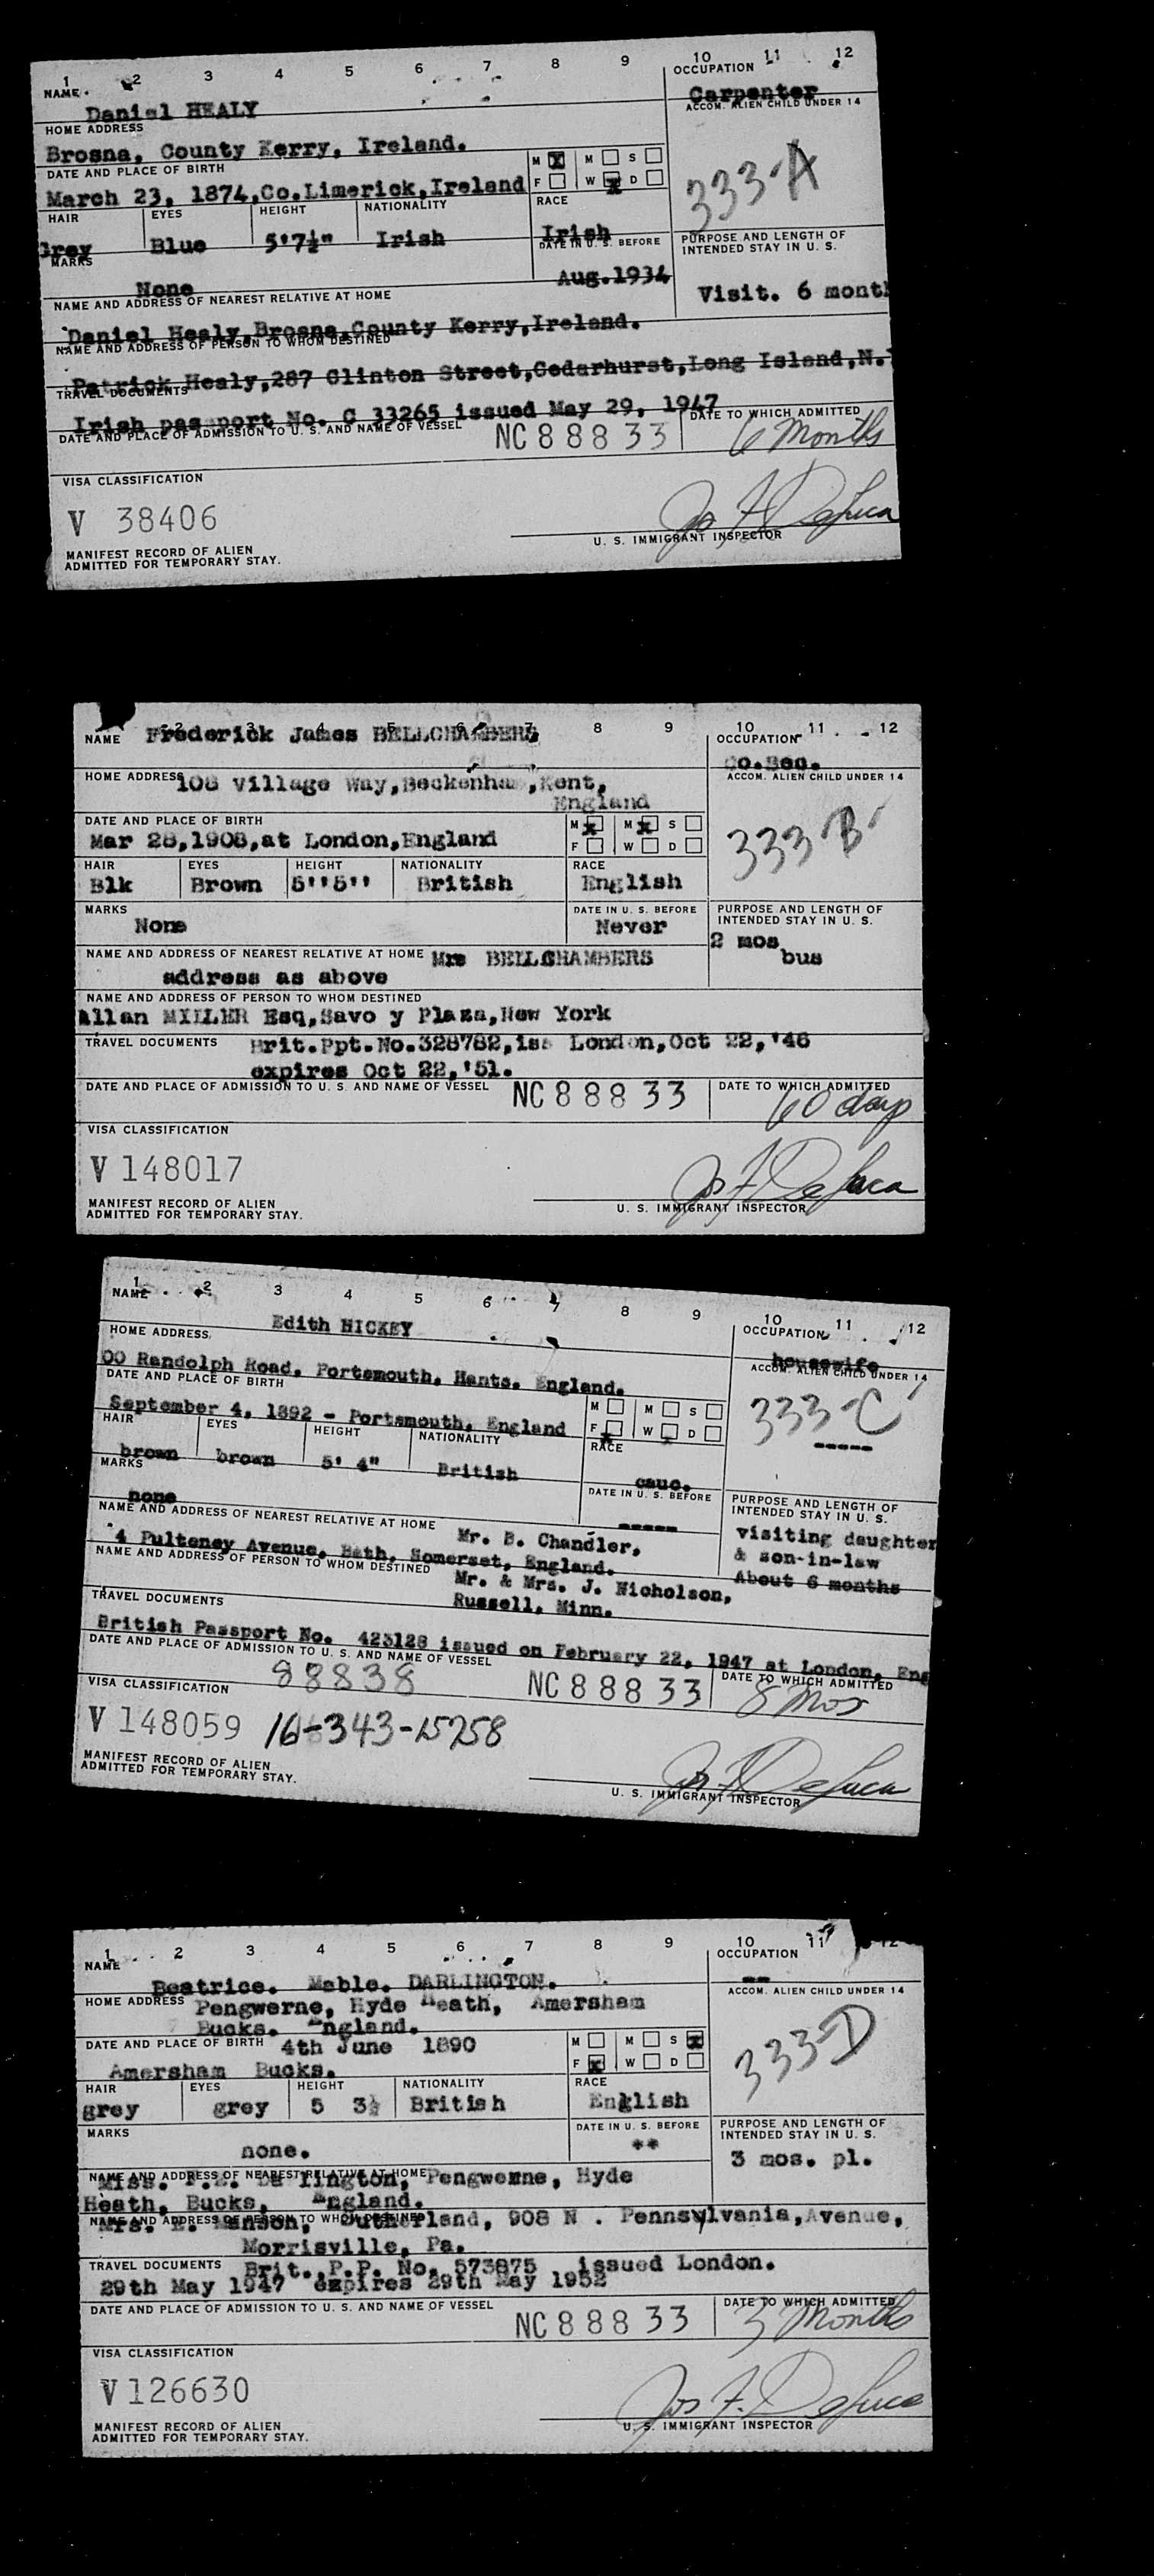 1 2 3 4 5 6 7 8 9 10 11 12
NAME
OCCUPATION
Daniel HEALY
Carpenter
HOME ADDRESS
ACCOM. ALIEN CHILD UNDER 14
Brosna, County Kerry, Ireland.
333-A
DATE AND PLACE OF BIRTH
M X M S
March 23, 1874,Co.Limerick,Ireland
F W X D
HAIR EYES HEIGHT NATIONALITY RACE
Grey Blue 5'7½" Irish Irish
MARKS
DATE IN U. S. BEFORE
PURPOSE AND LENGTH OF
INTENDED STAY IN U. S.
None
Aug.1934
Visit. 6 mont
NAME AND ADDRESS OF NEAREST RELATIVE AT HOME
Daniel Healy,Brosna,County Kerry,Ireland.
NAME AND ADDRESS OF PERSON TO WHOM DESTINED
Patrick Healy,287 Clinton Street,Cedarhurst,Long Island,N.
TRAVEL DOCUMENTS
Irish passport No. C 33265 issued May 29, 1947
DATE AND PLACE OF ADMISSION TO U. S. AND NAME OF VESSEL
NC 8 8 8 3 3
DATE TO WHICH ADMITTED
6 Months
VISA CLASSIFICATION
V 38406
Jos F DeLuca
U. S. IMMIGRANT INSPECTOR
MANIFEST RECORD OF ALIEN
ADMITTED FOR TEMPORARY STAY.
2 3 4 5 6 7 8 9 10 11 12
NAME Frederick James BELLCHAMBERS
OCCUPATION
Co.Sec.
HOME ADDRESS 108 Village Way,Beckenham,Kent,
England
ACCOM. ALIEN CHILD UNDER 14
333-B
DATE AND PLACE OF BIRTH
M X M X S
Mar 28,1908,at London,England
F W D
HAIR EYES HEIGHT NATIONALITY RACE
Blk Brown 5''5'' British English
MARKS
DATE IN U. S. BEFORE
PURPOSE AND LENGTH OF
INTENDED STAY IN U. S.
None
Never
2 mos
bus
NAME AND ADDRESS OF NEAREST RELATIVE AT HOME Mrs BELLCHAMBERS
address as above
NAME AND ADDRESS OF PERSON TO WHOM DESTINED
Allan MILLER Esq,Savo y Plaza,New York
TRAVEL DOCUMENTS Brit.Ppt.No.328782,iss London,Oct 22,'46
expires Oct 22,'51.
DATE AND PLACE OF ADMISSION TO U. S. AND NAME OF VESSEL
NC 8 8 8 3 3
DATE TO WHICH ADMITTED
60 days
VISA CLASSIFICATION
V 148017
Jos F DeLuca
U. S. IMMIGRANT INSPECTOR
MANIFEST RECORD OF ALIEN
ADMITTED FOR TEMPORARY STAY.
1 2 3 4 5 6 7 8 9 10 11 12
NAME
OCCUPATION
Edith HICKEY
housewife
HOME ADDRESS
ACCOM. ALIEN CHILD UNDER 14
00 Randolph Road, Portsmouth, Hants. England.
333-C
-----
DATE AND PLACE OF BIRTH
M M S
September 4, 1892 - Portsmouth, England
F X W D
HAIR EYES HEIGHT NATIONALITY RACE
brown brown 5' 4" British cauc.
MARKS
DATE IN U. S. BEFORE
PURPOSE AND LENGTH OF
INTENDED STAY IN U. S.
none
-----
visiting daughter
& son-in-law
About 6 months
NAME AND ADDRESS OF NEAREST RELATIVE AT HOME Mr. B. Chandler,
4 Pulteney Avenue, Bath, Somerset, England.
NAME AND ADDRESS OF PERSON TO WHOM DESTINED Mr. & Mrs. J. Nicholson,
Russell, Minn.
TRAVEL DOCUMENTS
British Passport No. 423128 issued on February 22, 1947 at London, Eng
DATE AND PLACE OF ADMISSION TO U. S. AND NAME OF VESSEL
88838
NC 8 8 8 3 3
DATE TO WHICH ADMITTED
8 mos
VISA CLASSIFICATION
V 148059 16-343-15258
Jos F DeLuca
U. S. IMMIGRANT INSPECTOR
MANIFEST RECORD OF ALIEN
ADMITTED FOR TEMPORARY STAY.
1 2 3 4 5 6 7 8 9 10 11 12
NAME
OCCUPATION
Beatrice. Mable. DARLINGTON.
--
HOME ADDRESS Pengwerne, Hyde Heath, Amersham
Bucks. England.
ACCOM. ALIEN CHILD UNDER 14
333-D
DATE AND PLACE OF BIRTH 4th June 1890
M M S X
Amersham Bucks.
F X W D
HAIR EYES HEIGHT NATIONALITY RACE
grey grey 5 3½ British English
MARKS
DATE IN U. S. BEFORE
PURPOSE AND LENGTH OF
INTENDED STAY IN U. S.
none.
**
3 mos. pl.
NAME AND ADDRESS OF NEAREST RELATIVE AT HOME
Miss. Darlington, Pengwerne, Hyde
Heath, Bucks, England.
NAME AND ADDRESS OF PERSON TO WHOM DESTINED
Mrs. E. Manson, Sutherland, 908 N . Pennsylvania,Avenue,
Morrisville, Pa.
TRAVEL DOCUMENTS Brit. P.P. No. 573875 issued London.
29th May 1947 expires 29th May 1952
DATE AND PLACE OF ADMISSION TO U. S. AND NAME OF VESSEL
NC 8 8 8 3 3
DATE TO WHICH ADMITTED
3 Months
VISA CLASSIFICATION
V 126630
Jos F. DeLuca
U. S. IMMIGRANT INSPECTOR
MANIFEST RECORD OF ALIEN
ADMITTED FOR TEMPORARY STAY.